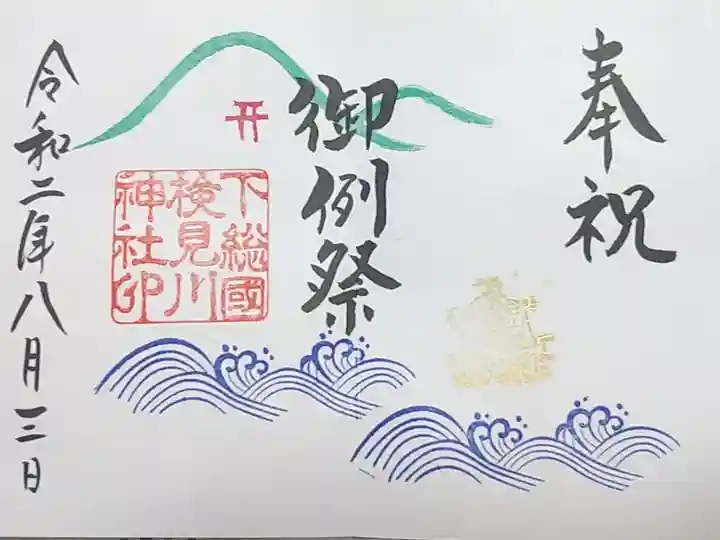 奉祝
御例祭
下総國
検見川
神社印
令和二年八月三日